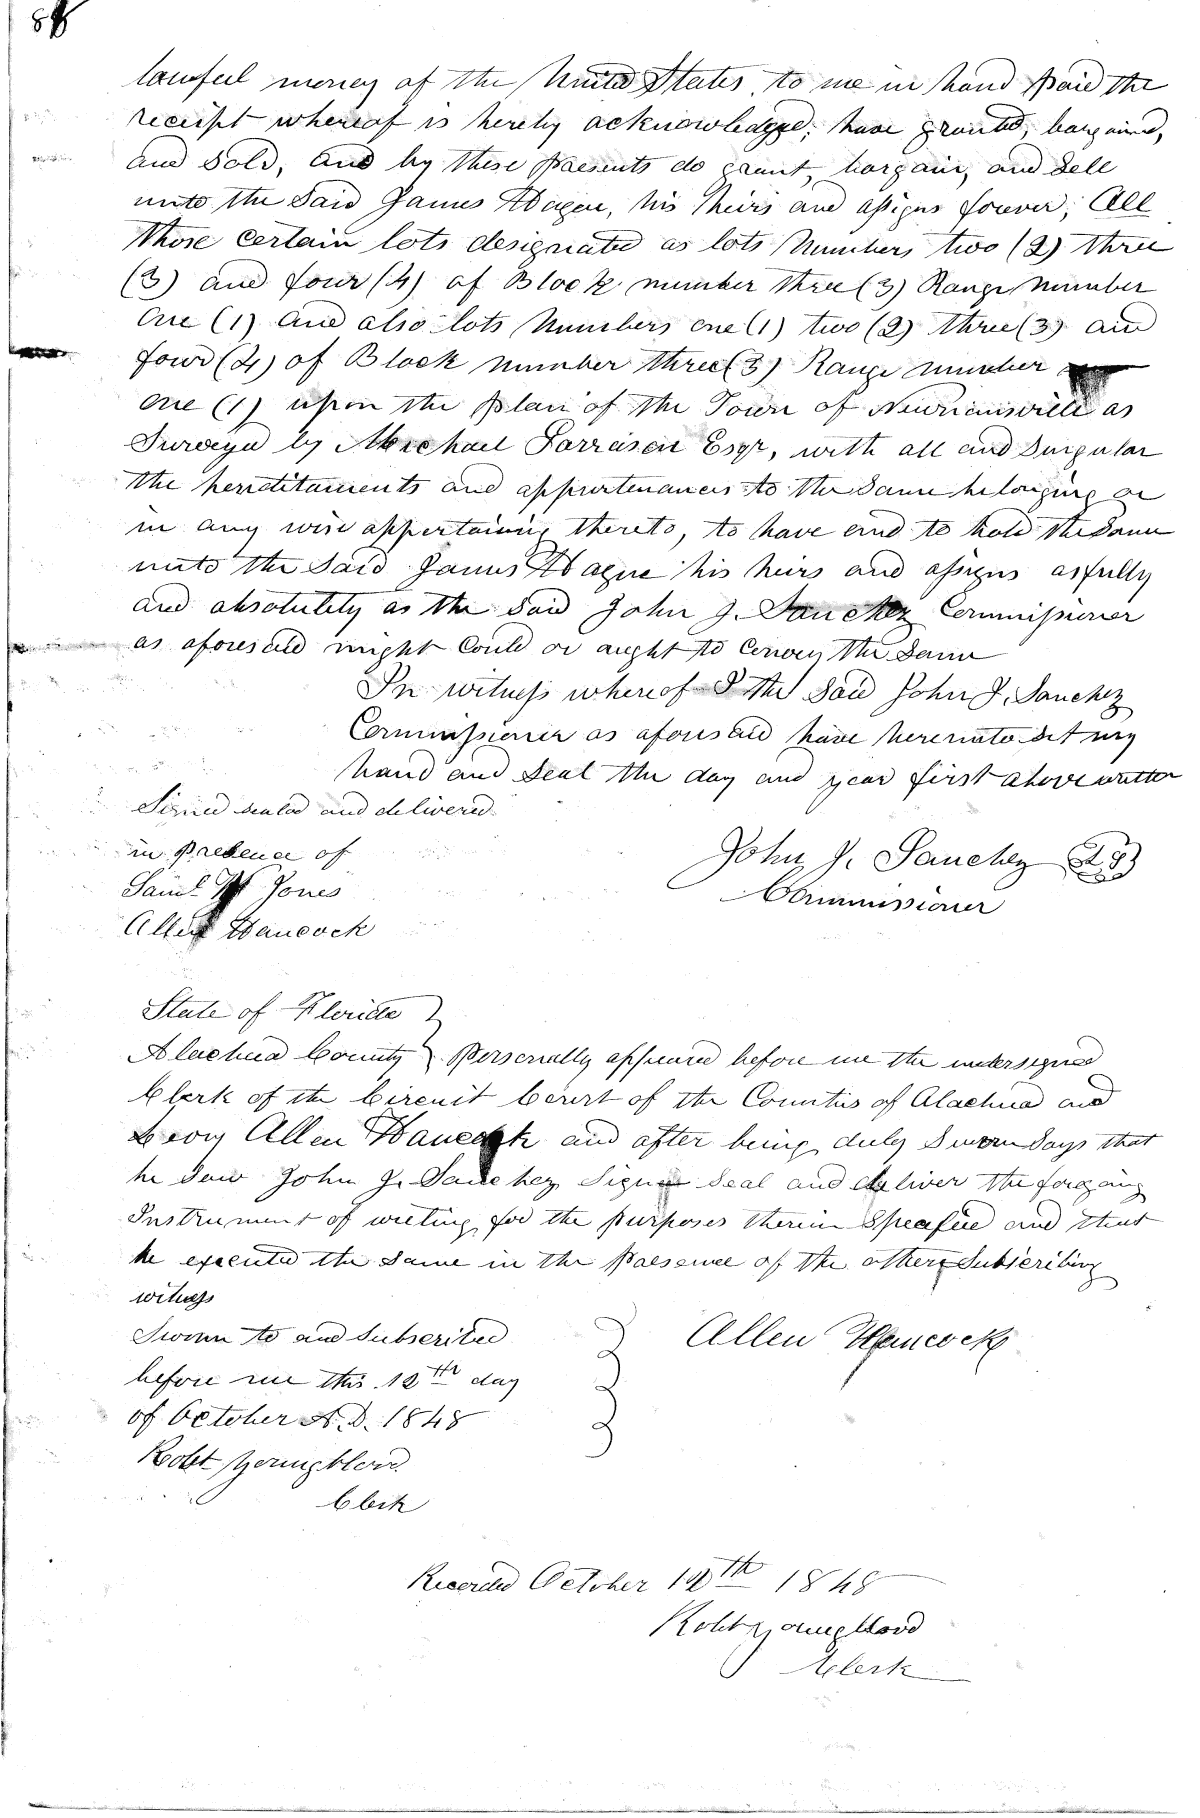 lawful money of the United States, to me in hand paid the
receipt whereof is hereby acknowledged; have granted, bargained,
and Sold, and by these presents do grant, bargain, and Sell
unto the Said James Hague, his heirs and assigns forever, All
those certain lots designated as lots Numbers two (2) three
(3) and four (4) of Block number three (3) Range Number
One (1) and also lots Numbers one (1) two (2) three (3) and
four (4) of Block number three (3) Range number
one (1) upon the plan of the Town of Newnansville as
Surveyed by Michael Garrison Esqr, with all and Singular
the hereditaments and appurtenances to the Same belonging or
in any wise appertaining thereto, to have and to hold the Same
unto the Said James Hague his heirs and assigns as fully
and absolutely as the Said John J. Sanchez Commissioner
as aforesaid might Could or aught to Convey the Same
In witness whereof I the Said John J. Sanchez
Commissioner as aforesaid have hereunto Set my
hand and Seal the day and year first above written
Signed sealed and delivered
in Presence of
John J. Sanchez
Saml W Jones
Commissioner
Allen Hancock
State of Florida }
Alachua County } Personally appeared before me the undersigned
Clerk of the Circuit Court of the Counties of Alachua and
Levy Allen Hancock and after being duly Sworn Says that
he Saw John J. Sanchez Sign Seal and deliver the forgoing
Instrument of writing for the purposes therein Specified and that
he executed the Same in the presence of the other Subscribing
witness
Sworn to and Subscribed
Allen Hancock
before me this 12th day
of October A.D. 1848
Robt Youngblood
Clerk
Recorded October 12th 1848
Robt Youngblood
Clerk